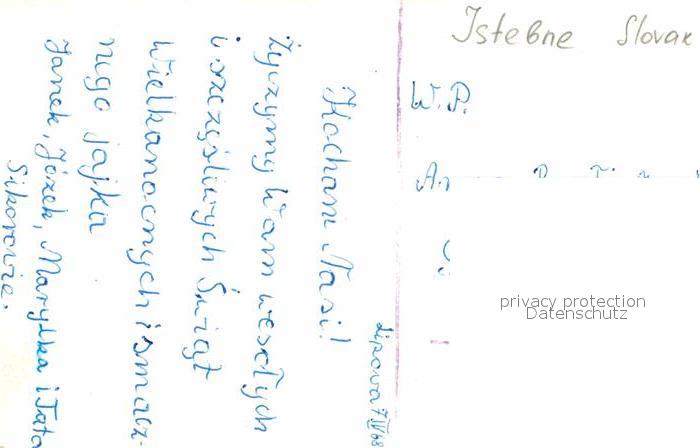 Lipova 7 IV 68
Kochani Nasi!
Życzymy Wam wesołych
i szczęśliwych Świąt
Wielkanocnych i smacz-
nego jajka
Janek, Józek, Marylka i Tata
Sikorowie.
Istebne Slovak
W.P.
privacy protection
Datenschutz